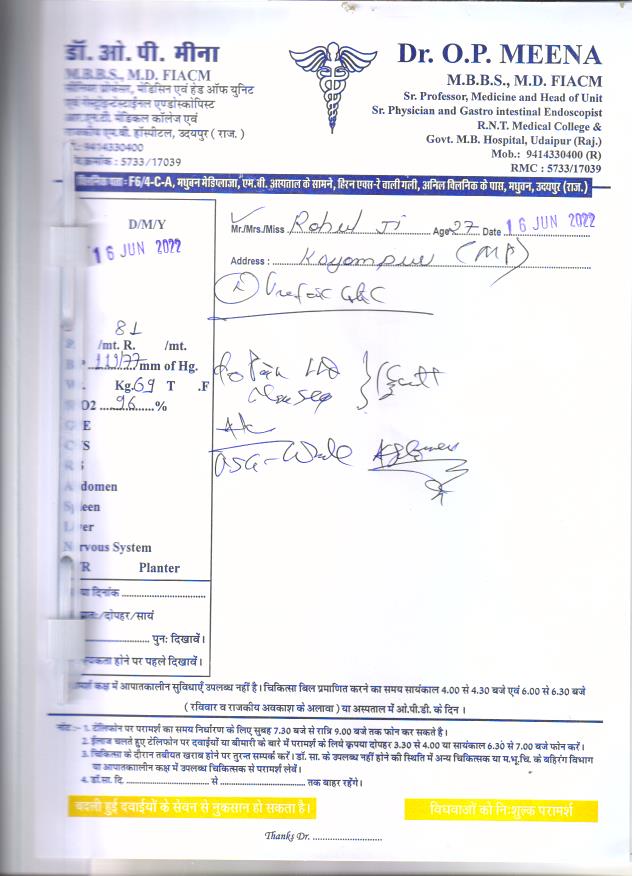 डॉ. ओ. पी. मीना
M.B.B.S., M.D. FIACM
सीनियर प्रोफेसर, मेडिसिन एवं हेड ऑफ यूनिट
एवं गेस्ट्रोइन्टेस्टाईनल एण्डोस्कोपिस्ट
आर.एन.टी. मेडिकल कॉलेज एवं
राजकीय एम.बी. हॉस्पीटल, उदयपुर ( राज. )
9414330400
क्रमांक : 5733/17039
Dr. O.P. MEENA
M.B.B.S., M.D. FIACM
Sr. Professor, Medicine and Head of Unit
Sr. Physician and Gastro intestinal Endoscopist
R.N.T. Medical College &
Govt. M.B. Hospital, Udaipur (Raj.)
Mob.: 9414330400 (R)
RMC : 5733/17039
पता : F6/4-C-A, मधुबन मेडिप्लाजा, एम.बी. अस्पताल के सामने, हिरन एक्स-रे वाली गली, अनिल क्लिनिक के पास, मधुबन, उदयपुर (राज.)
D/M/Y
16 JUN 2022
Mr./Mrs./Miss Age 27 Date 16 JUN 2022
Address : (MP)
81
/mt. R. /mt.
113/77 mm of Hg.
Kg. 69 T .F
O2 96 %
E
/S
domen
leen
er
rvous System
/R Planter
या दिनांक
प्रातः/दोपहर/सायं
पुनः दिखावें।
आवश्यकता होने पर पहले दिखावें।
Pain
परामर्श कक्ष में आपातकालीन सुविधाएँ उपलब्ध नहीं है। चिकित्सा बिल प्रमाणित करने का समय सायंकाल 4.00 से 4.30 बजे एवं 6.00 से 6.30 बजे
( रविवार व राजकीय अवकाश के अलावा ) या अस्पताल में ओ.पी.डी. के दिन ।
नोट :- 1. टेलिफोन पर परामर्श का समय निर्धारण के लिए सुबह 7.30 बजे से रात्रि 9.00 बजे तक फोन कर सकते है।
2. ईलाज चलते हुए टेलिफोन पर दवाईयों या बीमारी के बारे में परामर्श के लिये कृपया दोपहर 3.30 से 4.00 या सायंकाल 6.30 से 7.00 बजे फोन करें।
3. चिकित्सा के दौरान तबीयत खराब होने पर तुरन्त सम्पर्क करें। डॉ. सा. के उपलब्ध नहीं होने की स्थिति में अन्य चिकित्सक या म.भू.चि. के बहिरंग विभाग
या आपातकालीन कक्ष में उपलब्ध चिकित्सक से परामर्श लेवें।
4. डॉ.सा. दि. से तक बाहर रहेंगे।
बदली हुई दवाईयों के सेवन से नुकसान हो सकता है।
विधवाओं को निःशुल्क परामर्श
Thanks Dr.